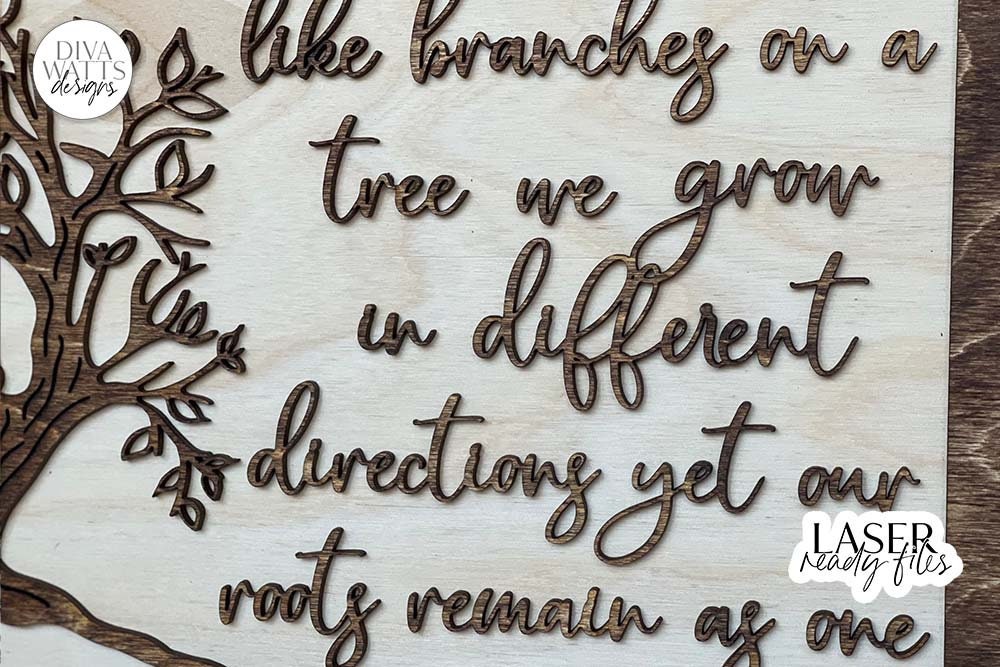 DIVA
WATTS
designs
like branches on a
tree we grow
in different
directions yet our
roots remain as one
LASER
ready files